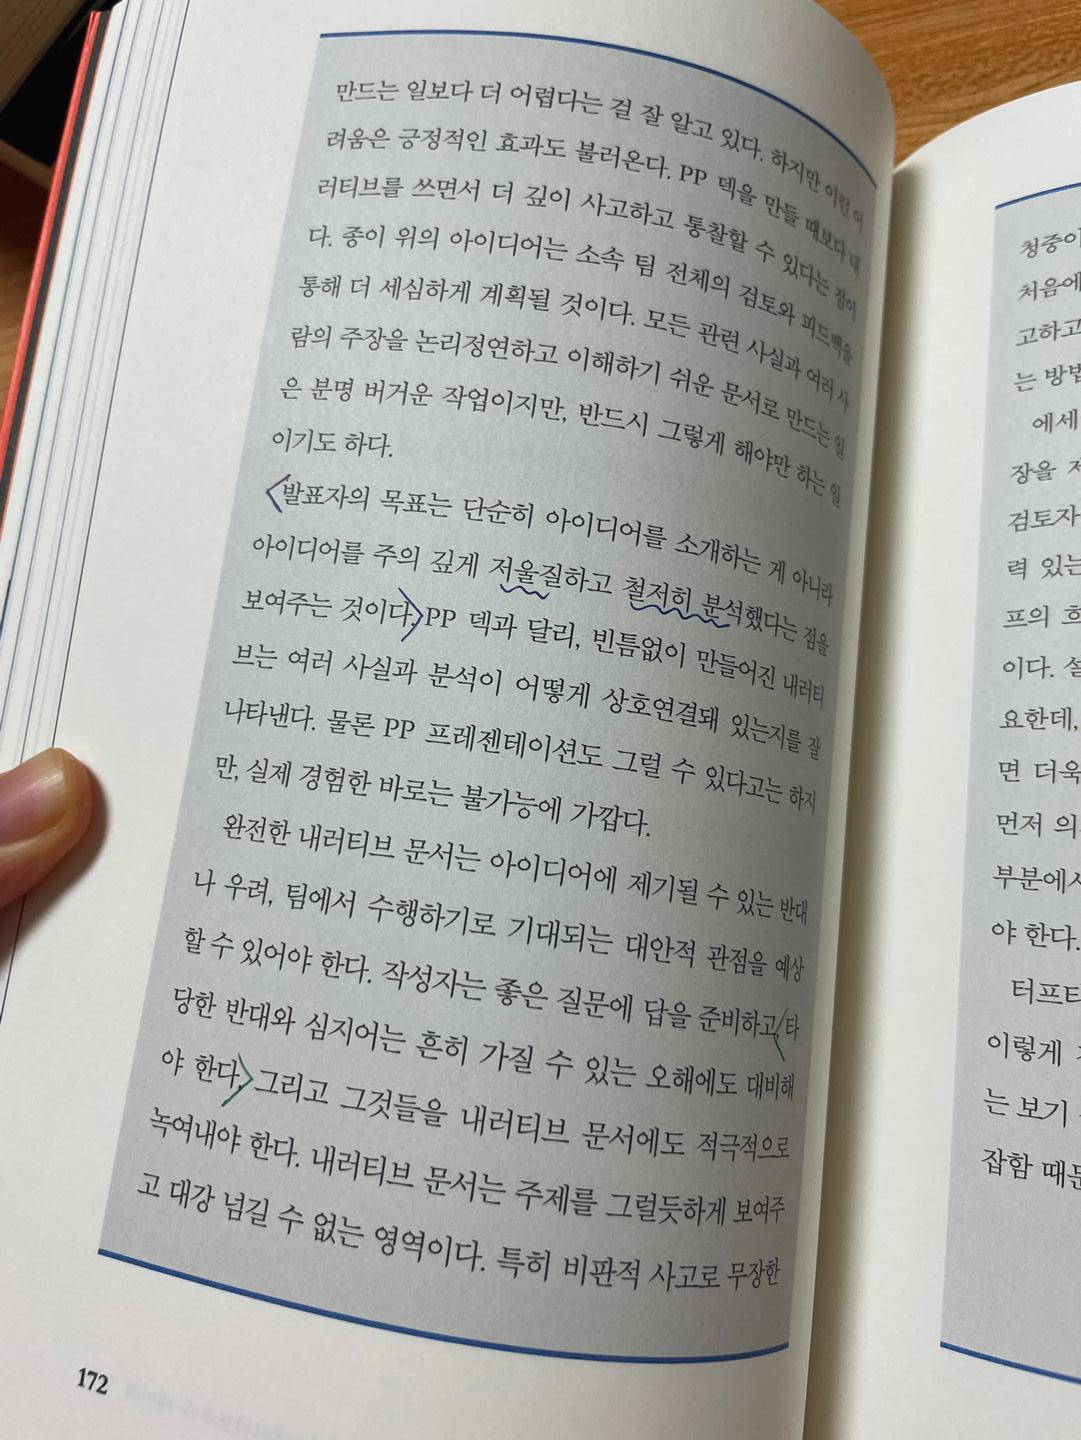 만드는 일보다 더 어렵다는 걸 잘 알고 있다. 하지만 이런 어
려움은 긍정적인 효과도 불러온다. PP 덱을 만들 때보다 내
러티브를 쓰면서 더 깊이 사고하고 통찰할 수 있다는 점이
다. 종이 위의 아이디어는 소속 팀 전체의 검토와 피드백을
통해 더 세심하게 계획될 것이다. 모든 관련 사실과 여러 사
람의 주장을 논리정연하고 이해하기 쉬운 문서로 만드는 일
은 분명 버거운 작업이지만, 반드시 그렇게 해야만 하는 일
이기도 하다.
발표자의 목표는 단순히 아이디어를 소개하는 게 아니라
아이디어를 주의 깊게 저울질하고 철저히 분석했다는 점을
보여주는 것이다. PP 덱과 달리, 빈틈없이 만들어진 내러티
브는 여러 사실과 분석이 어떻게 상호연결돼 있는지를 잘
나타낸다. 물론 PP 프레젠테이션도 그럴 수 있다고는 하지
만, 실제 경험한 바로는 불가능에 가깝다.
완전한 내러티브 문서는 아이디어에 제기될 수 있는 반대
나 우려, 팀에서 수행하기로 기대되는 대안적 관점을 예상
할 수 있어야 한다. 작성자는 좋은 질문에 답을 준비하고, 타
당한 반대와 심지어는 흔히 가질 수 있는 오해에도 대비해
야 한다. 그리고 그것들을 내러티브 문서에도 적극적으로
녹여내야 한다. 내러티브 문서는 주제를 그럴듯하게 보여주
고 대강 넘길 수 없는 영역이다. 특히 비판적 사고로 무장한
172
청중이
처음에
고하고
는 방법
에세
장을
검토자
력 있는
프의
이다.
요한데,
면 더욱
먼저 의
부분에서
야 한다.
터프티
이렇게
는 보기
잡함 때문